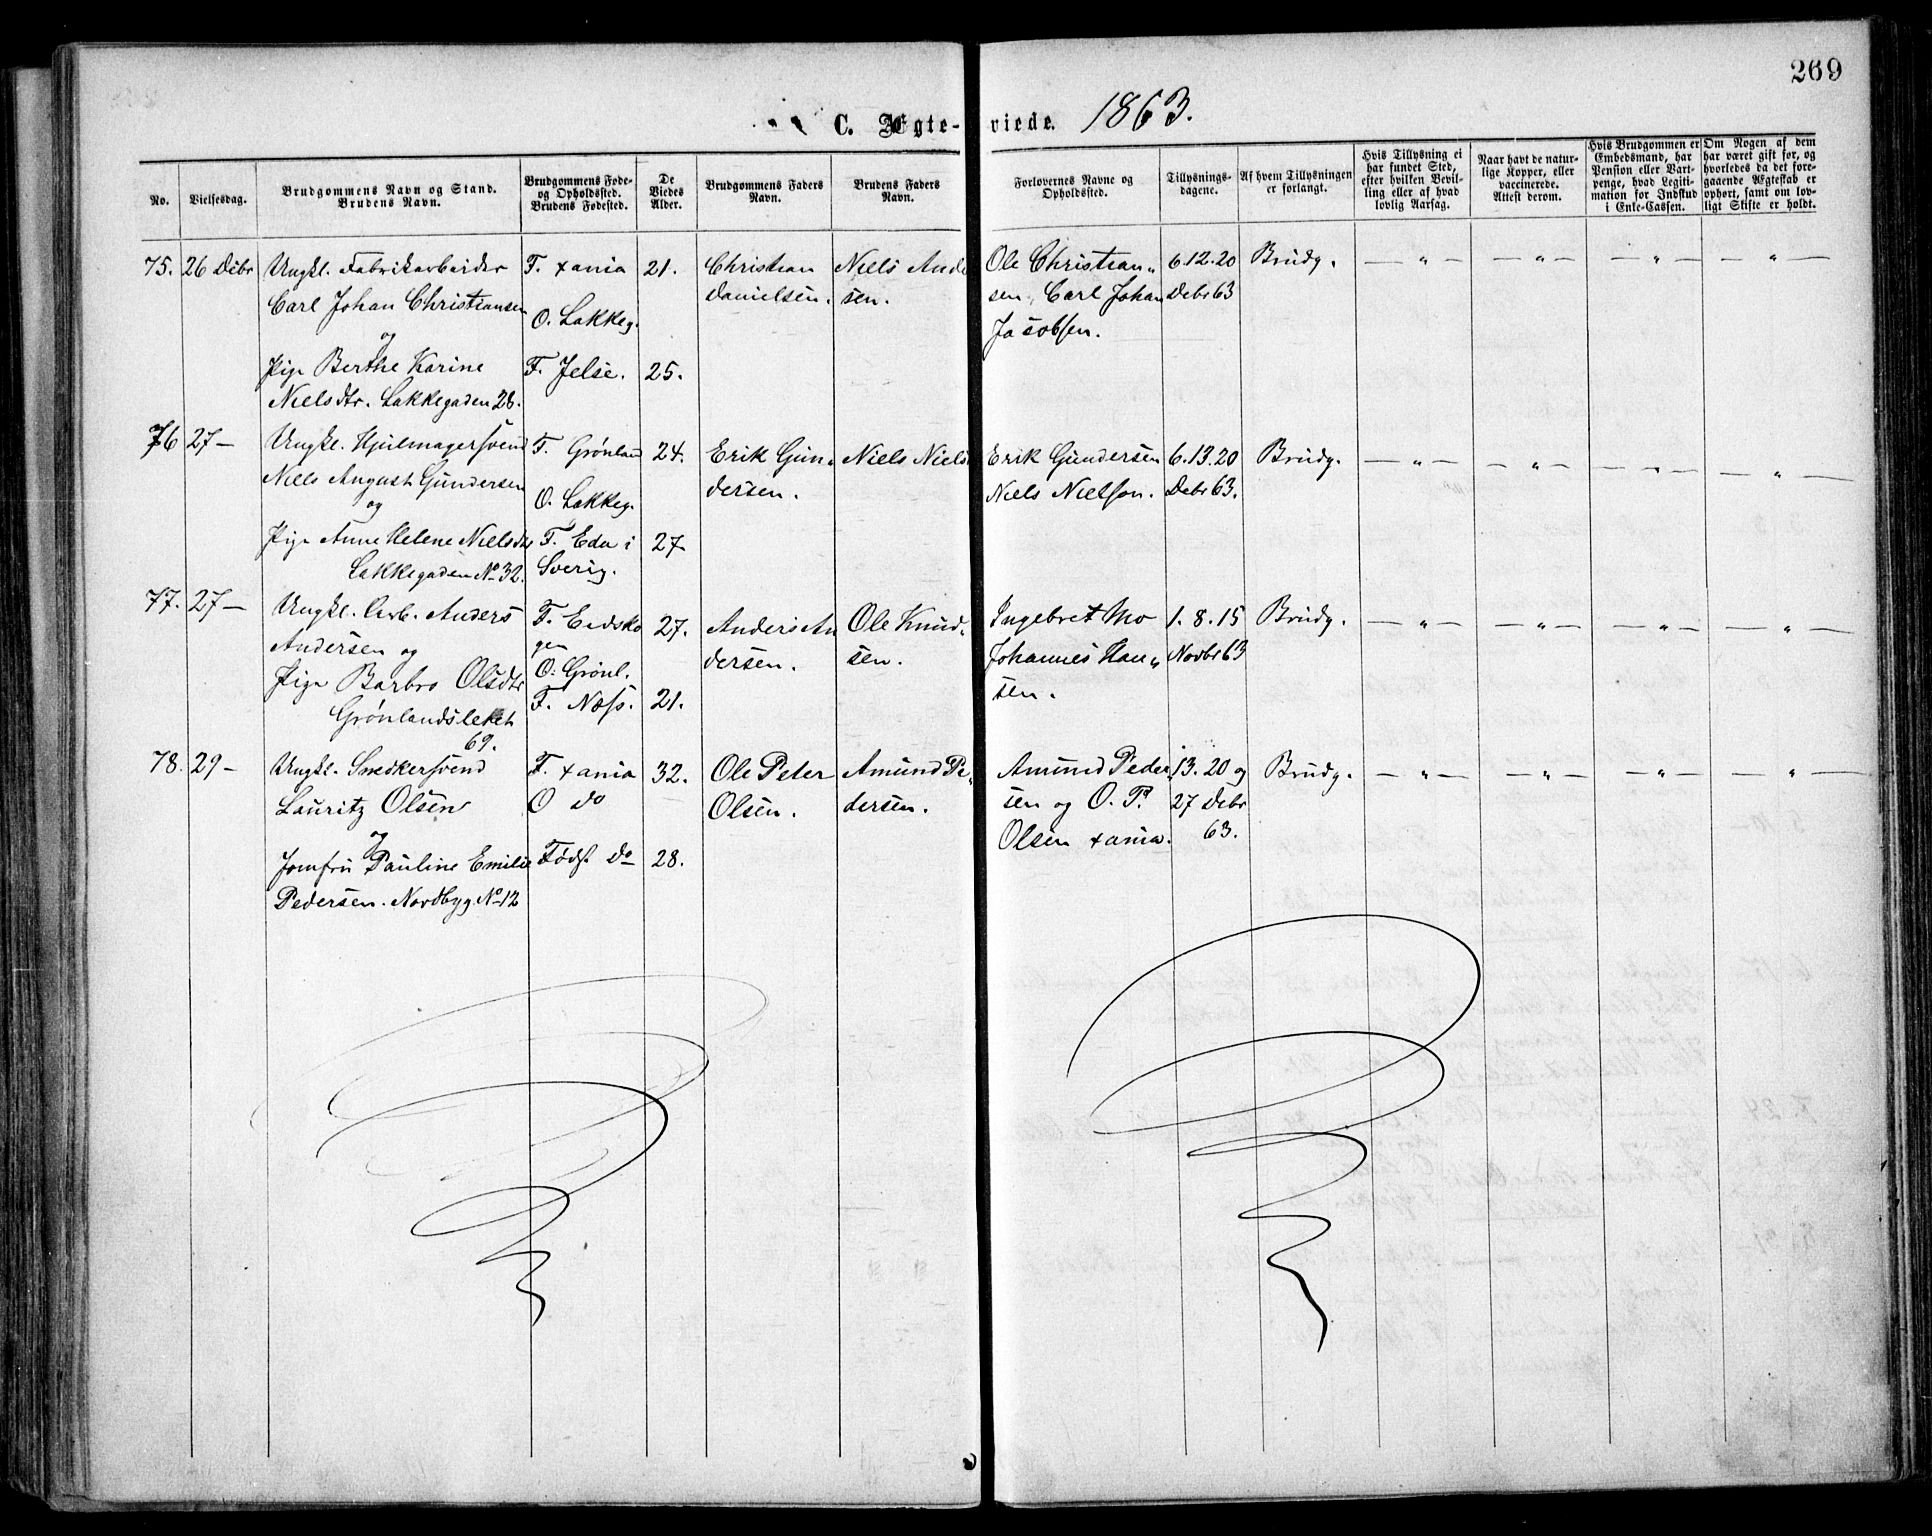 269
C. Ægte-viede. 1863.
No.
Vielsesdag.
Brudgommens Navn og Stand.
Brudens Navn.
Brudgommens Føde-
og Opholdssted.
Brudens Fødested.
De
Viedes
Alder.
Brudgommens Faders
Navn.
Brudens Faders
Navn.
Forlovernes Navne og
Opholdssted.
Tillysnings-
dagene.
Af hvem Tillysningen
er forlangt.
Hvis Tillysning ei
har fundet Sted,
efter hvilken Bevil-
ling eller af hvad
lovlig Aarsag.
Naar havt de natur-
lige Kopper, eller
vaccinerede.
Attest derom.
Hvis Brudgommen er
Embedsmand, har
Pension eller Vart-
penge, hvad Legiti-
mation for Indskud
i Enke-Cassen.
Om Nogen af dem
har været gift før, og
hvorledes da det fore-
gaaende Ægteskab er
ophørt, samt om lov-
ligt Skifte er holdt.
75. 26 Debr Ungkl. Fabrikarbeider F. xania 21. Christian Niels Ander Ole Christian„ 6.12.20 Brudg. — „ — — „ — — „ — — „ —
Carl Johan Christiansen O. Lakkeg. Danielsen. sen. sen, Carl Johan Debr 63
og Jacobsen.
Pige Berthe Karine F. Jelse. 25.
Nielsdtr. Lakkegaden 28.
76 27 — Ungkl. Hjulmagersvend F. Grønland 24. Erik Gun„ Niels Niels Erik Gundersen 6.13.20 Brudg. — „ — — „ — — „ — — „ —
Niels August Gundersen O. Lakkeg. dersen. Niels Nielsen. Debr 63.
og
Pige Anne Helene Nielsdtr F. Eda i 27
Lakkegaden No 32. Sverig.
77. 27 — Ungkl. Arb. Anders F. Eidsko 27. Anders An Ole Knud„ Ingebret Mo 1.8.15 Brudg. — „ — — „ — — „ — — „ —
Andersen og gen dersen. sen. Johannes Han„ Novbr 63
O. Grønl. sen.
Pige Barbro Olsdtr F. Næss. 21.
Grønlandsleret
69.
78. 29 — Ungkl. Snedkersvend F. xania 32. Ole Peter Amund Pe„ Amund Peder 13. 20 og Brudg. — „ — — „ — — „ — — „ —
Lauritz Olsen O do Olsen. dersen. sen og O. P. 27 Debr
og Olsen xania. 63.
Jomfru Pauline Emilie Født do 28.
Pedersen. Nordbyg. No 12